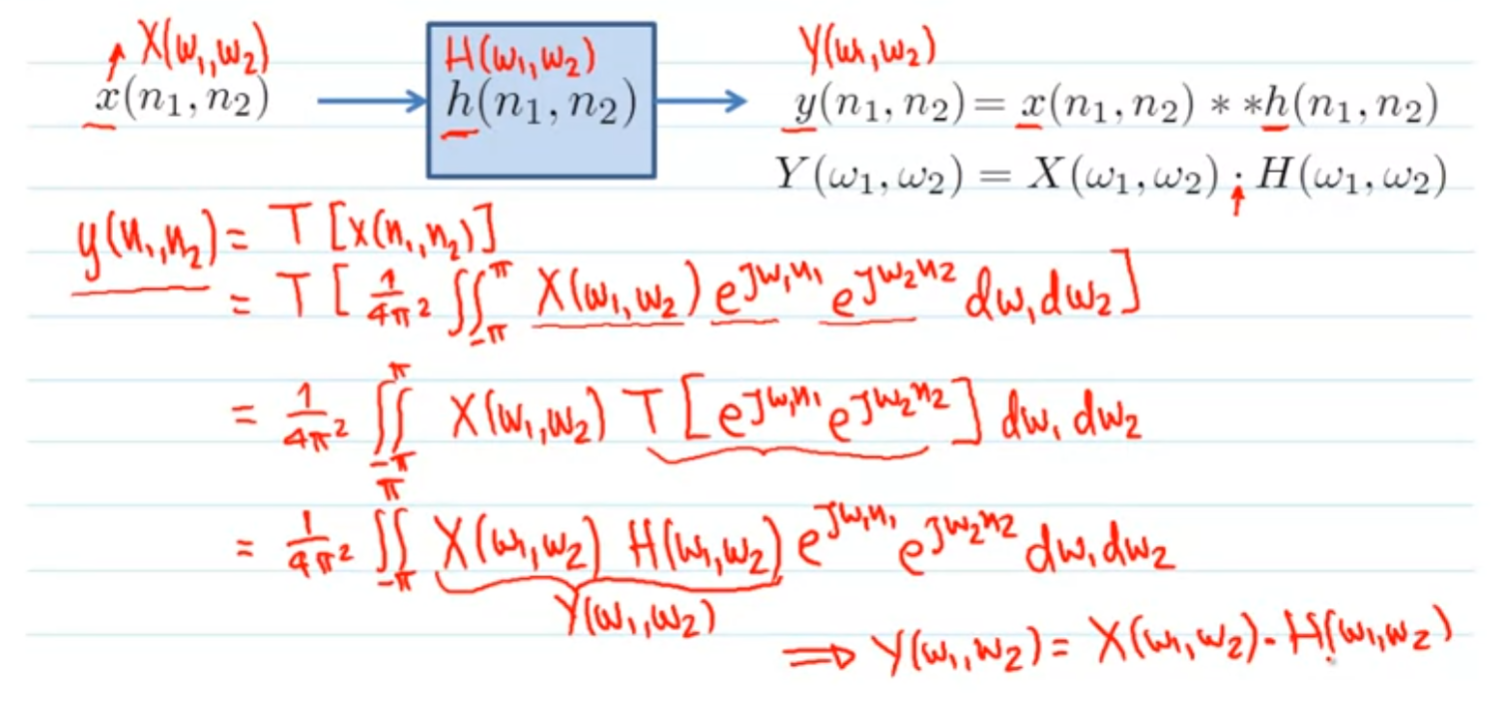 X(ω₁,ω₂) H(ω₁,ω₂) Y(ω₁,ω₂)
x(n₁, n₂) h(n₁, n₂) y(n₁, n₂) = x(n₁, n₂) ∗ ∗h(n₁, n₂)
Y(ω₁, ω₂) = X(ω₁, ω₂) · H(ω₁, ω₂)
y(n₁,n₂) = T [x(n₁,n₂)]
= T [ 1/4π² ∬_{-π}^{π} X(ω₁,ω₂) e^{jω₁n₁} e^{jω₂n₂} dω₁dω₂ ]
= 1/4π² ∬_{-π}^{π} X(ω₁,ω₂) T [e^{jω₁n₁} e^{jω₂n₂}] dω₁ dω₂
= 1/4π² ∬_{-π}^{π} X(ω₁,ω₂) H(ω₁,ω₂) e^{jω₁n₁} e^{jω₂n₂} dω₁dω₂
Y(ω₁,ω₂)
⟹ Y(ω₁,ω₂) = X(ω₁,ω₂) · H(ω₁,ω₂)